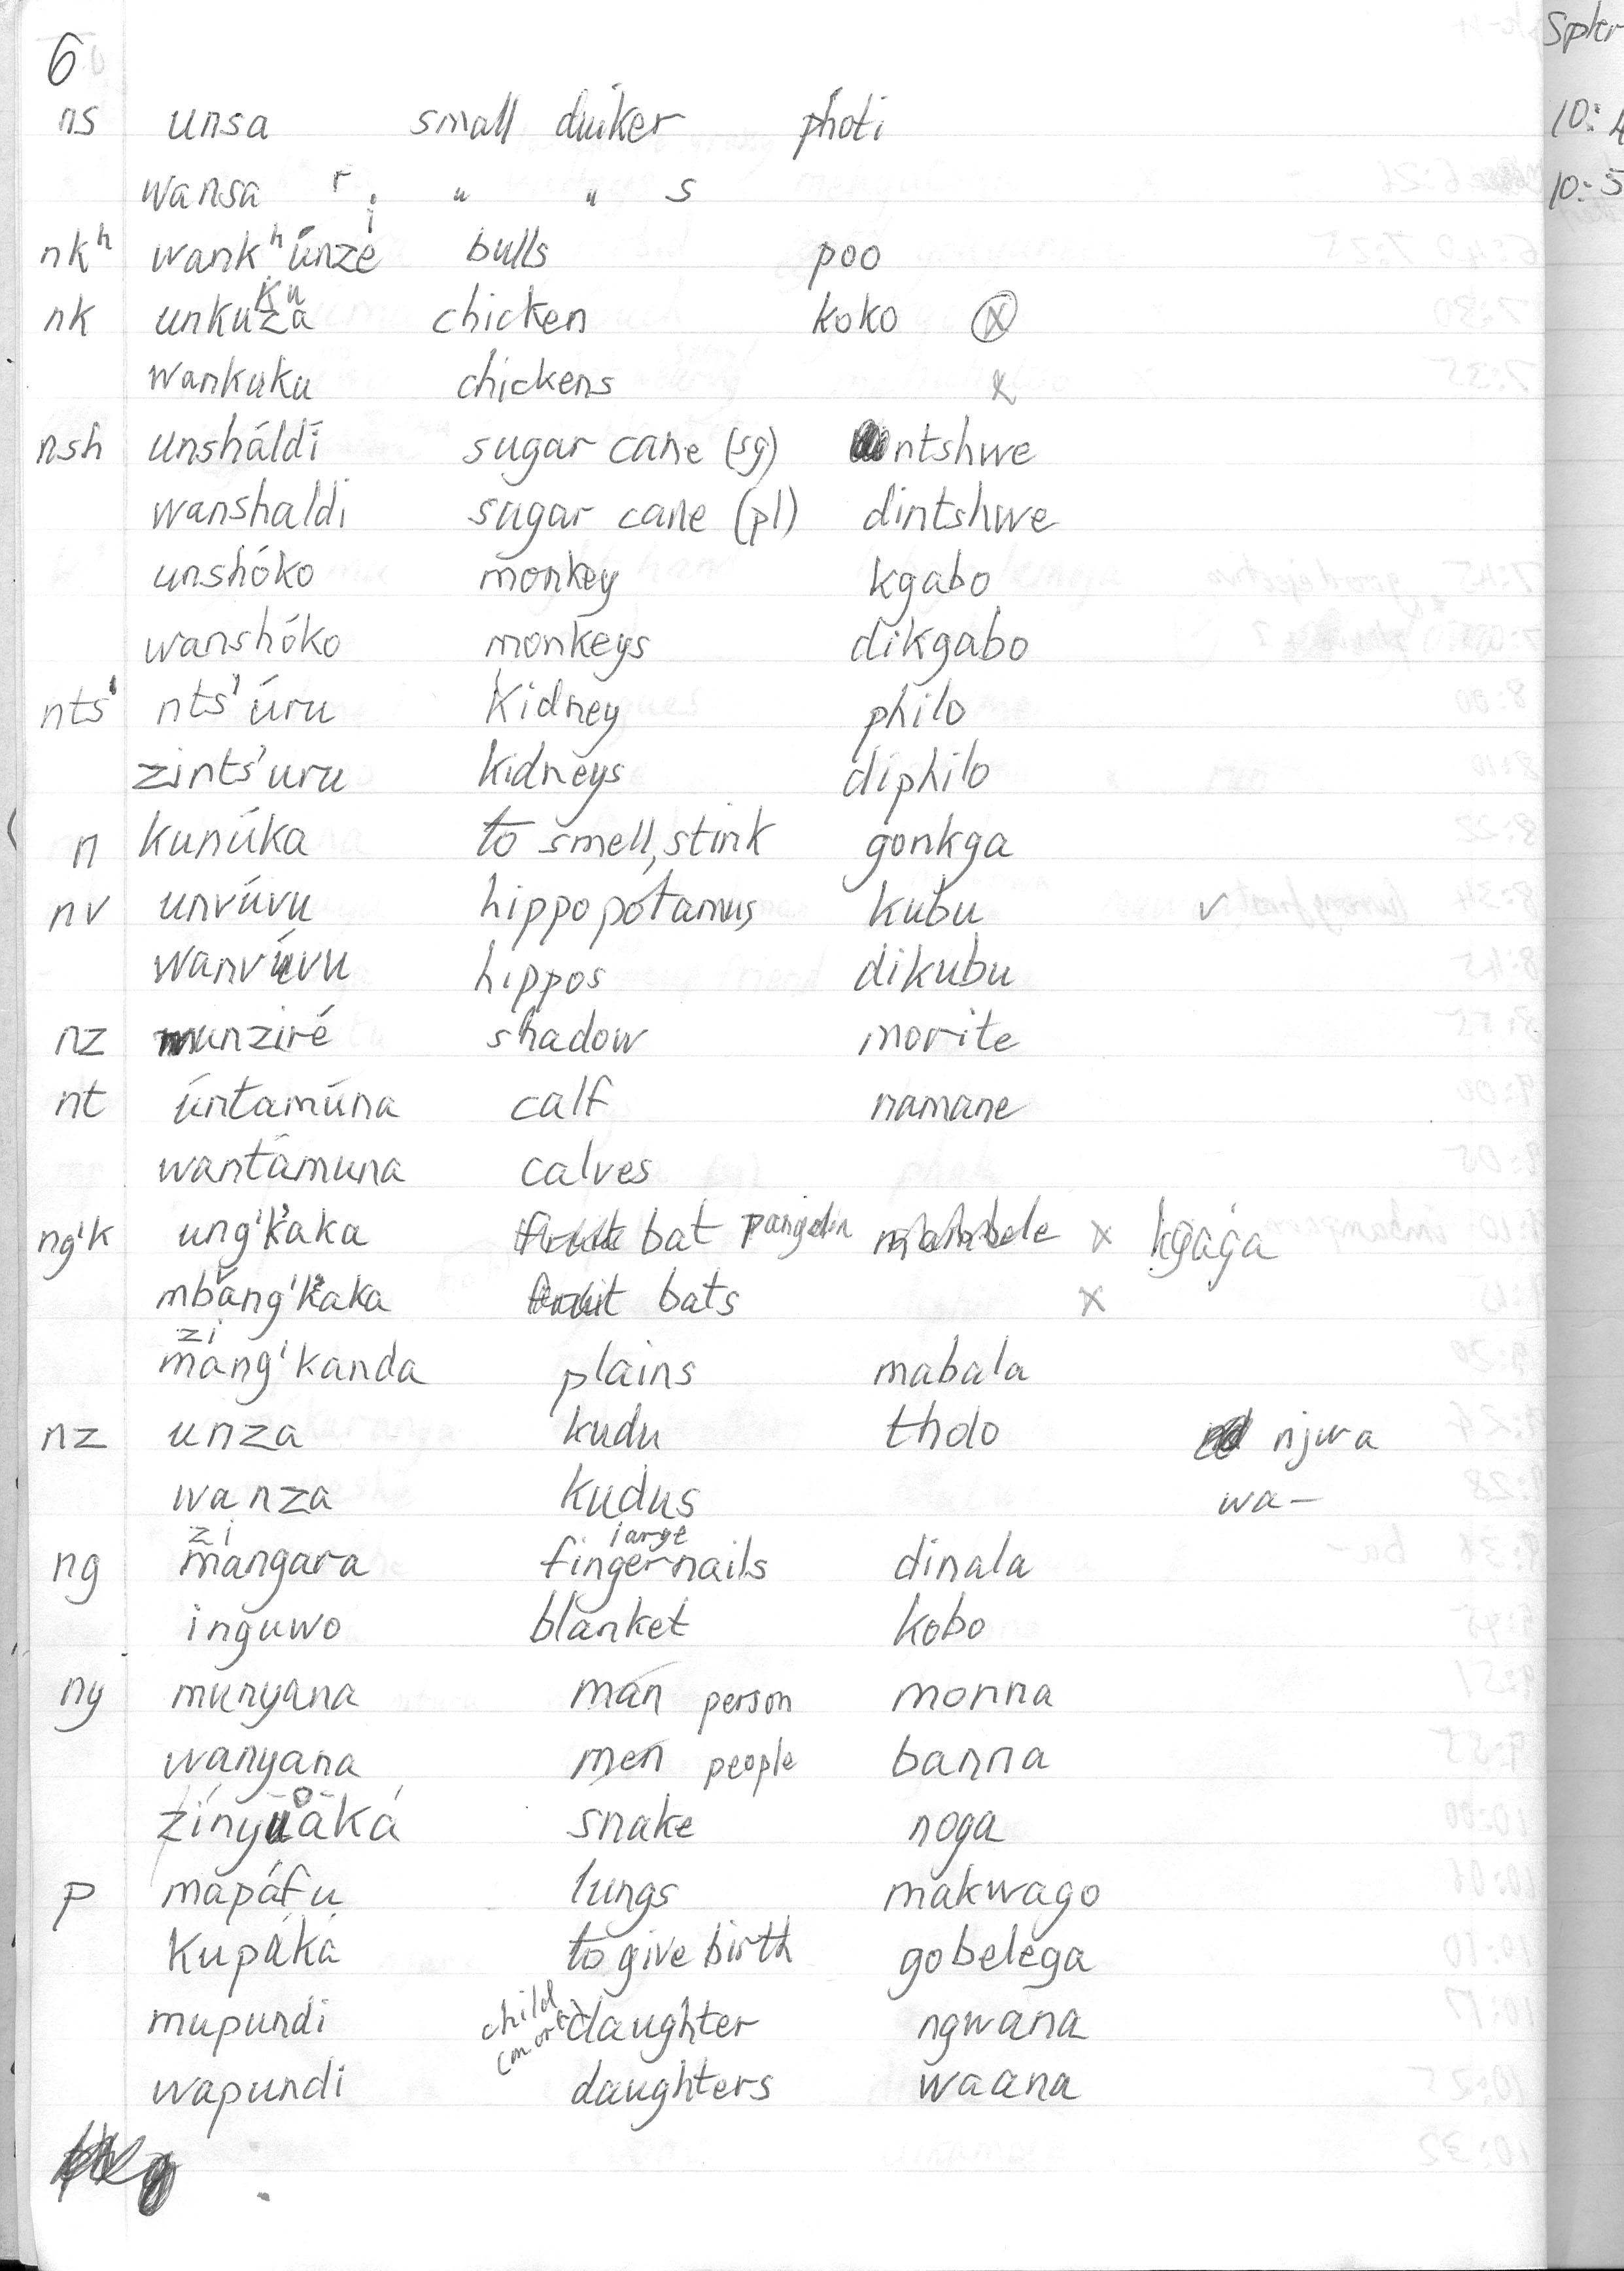 6
ns unsa small duiker photi
wansa r " " s
i
nkʰ wankʰúnzé bulls poo
ku
nk unkuza chicken koko ⓧ
wankuku chickens x
nsh unsháldí sugar cane (sg) ntshwe
wanshaldi sugar cane (pl) dintshwe
unshóko monkey kgabo
wanshóko monkeys dikgabo
nts' nts'úru kidney philo
zints'uru kidneys diphilo
n kunúka to smell, stink gonkga
nv unvúvu hippopotamus kubu ✓
wanvúvu hippos dikubu
nz munziré shadow morite
nt úntamúna calf namane
wantámuna calves
ng'k ung'kaka fruit bat pangolin x kgaga
mbang'kaka fruit bats x
zi
mang'kanda plains mabala
nz unza kudu tholo njwa
wanza kudus wa-
zi large
ng mangara fingernails dinala
inguwo blanket kobo
ny munyana man person monna
wanyana men people banna
o
zínyuáká snake noga
p mapáfu lungs makwago
kupáka to give birth gobelega
mupundi child daughter ngwana
wapundi daughters waana
Spkr
10:4
10:5